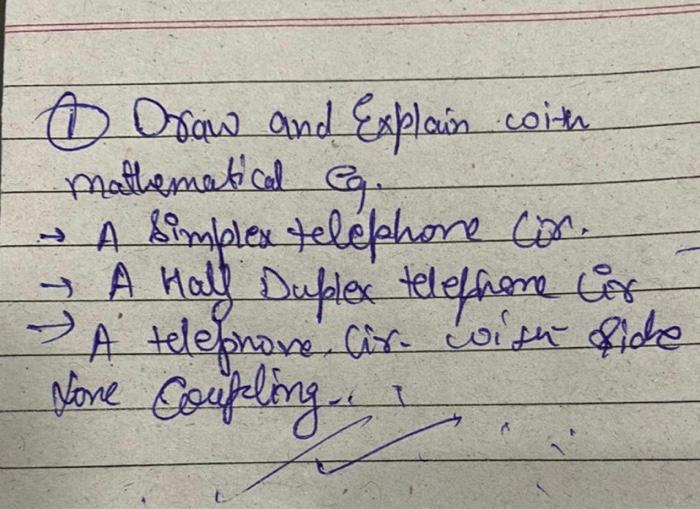 ① Draw and Explain with
mathematical eq.
→ A Simplex telephone Cir.
→ A Half Duplex telephone Cir
→ A telephone Cir. with Side
None Coupling..